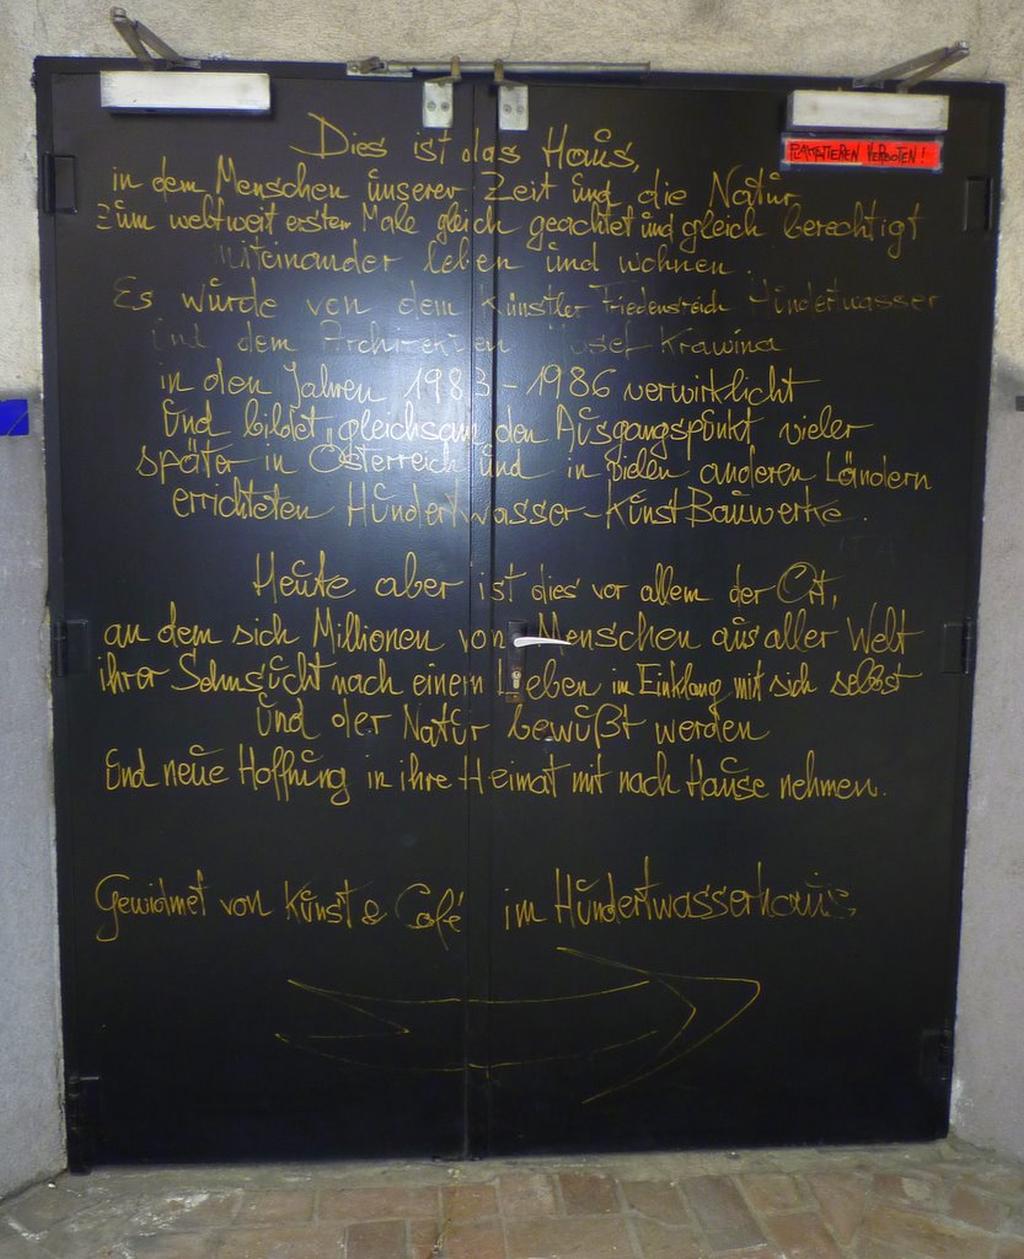 Dies ist das Haus,
PLAKATIEREN VERBOTEN!
in dem Menschen unserer Zeit und die Natur
zum weltweit ersten Male gleich geachtet und gleich berechtigt
miteinander leben und wohnen.
Es wurde von dem Künstler Friedensreich Hundertwasser
und dem Architekten Josef Krawina
in den Jahren 1983-1986 verwirklicht
und bildet gleichsam den Ausgangspunkt vieler
später in Österreich und in vielen anderen Ländern
errichteten Hundertwasser-KunstBauwerke.
Heute aber ist dies vor allem der Ort,
an dem sich Millionen von Menschen aus aller Welt
ihrer Sehnsucht nach einem Leben im Einklang mit sich selbst
und der Natur bewußt werden
und neue Hoffnung in ihre Heimat mit nach Hause nehmen.
Gewidmet von Kunst & Café im Hundertwasserhaus,